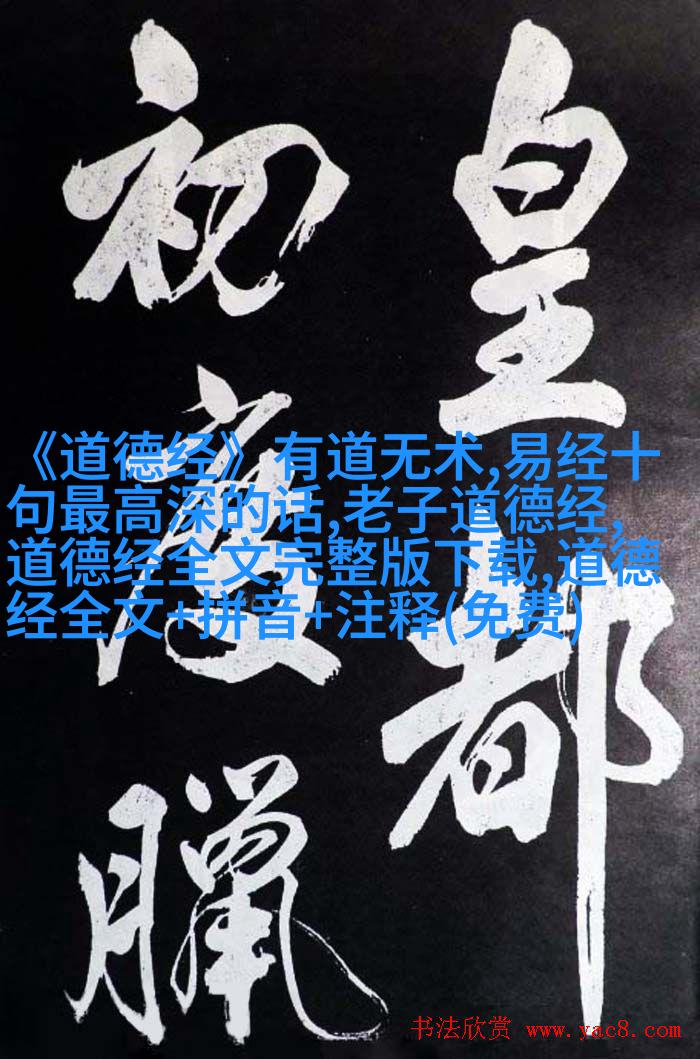 皇都
初度臘
《道德经》有道无术,易经十
句最高深的话,老子道德经,
道德经全文完整版下载,道德
经全文+拼音+注释(免费)
书法欣赏 www.yac8.com